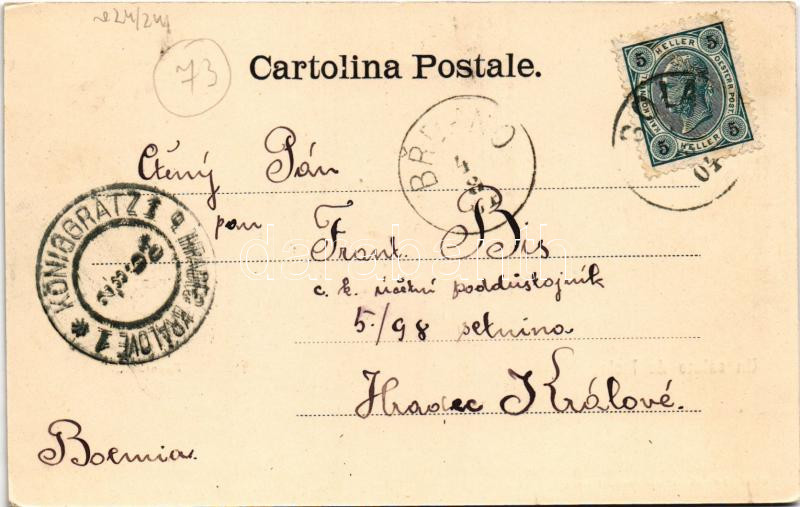 73
Cartolina Postale.
5 HELLER 5
OESTERR. POST
5 HELLER 5
04
BŘEZNO
4
Ctěný Pán
pan Frant. Bis
c. k. účetní poddůstojník
5/98 setnina
Hradec Králové.
Boemia.
KÖNIGGRÄTZ 1
HRADEC KRÁLOVÉ 1
darabanth